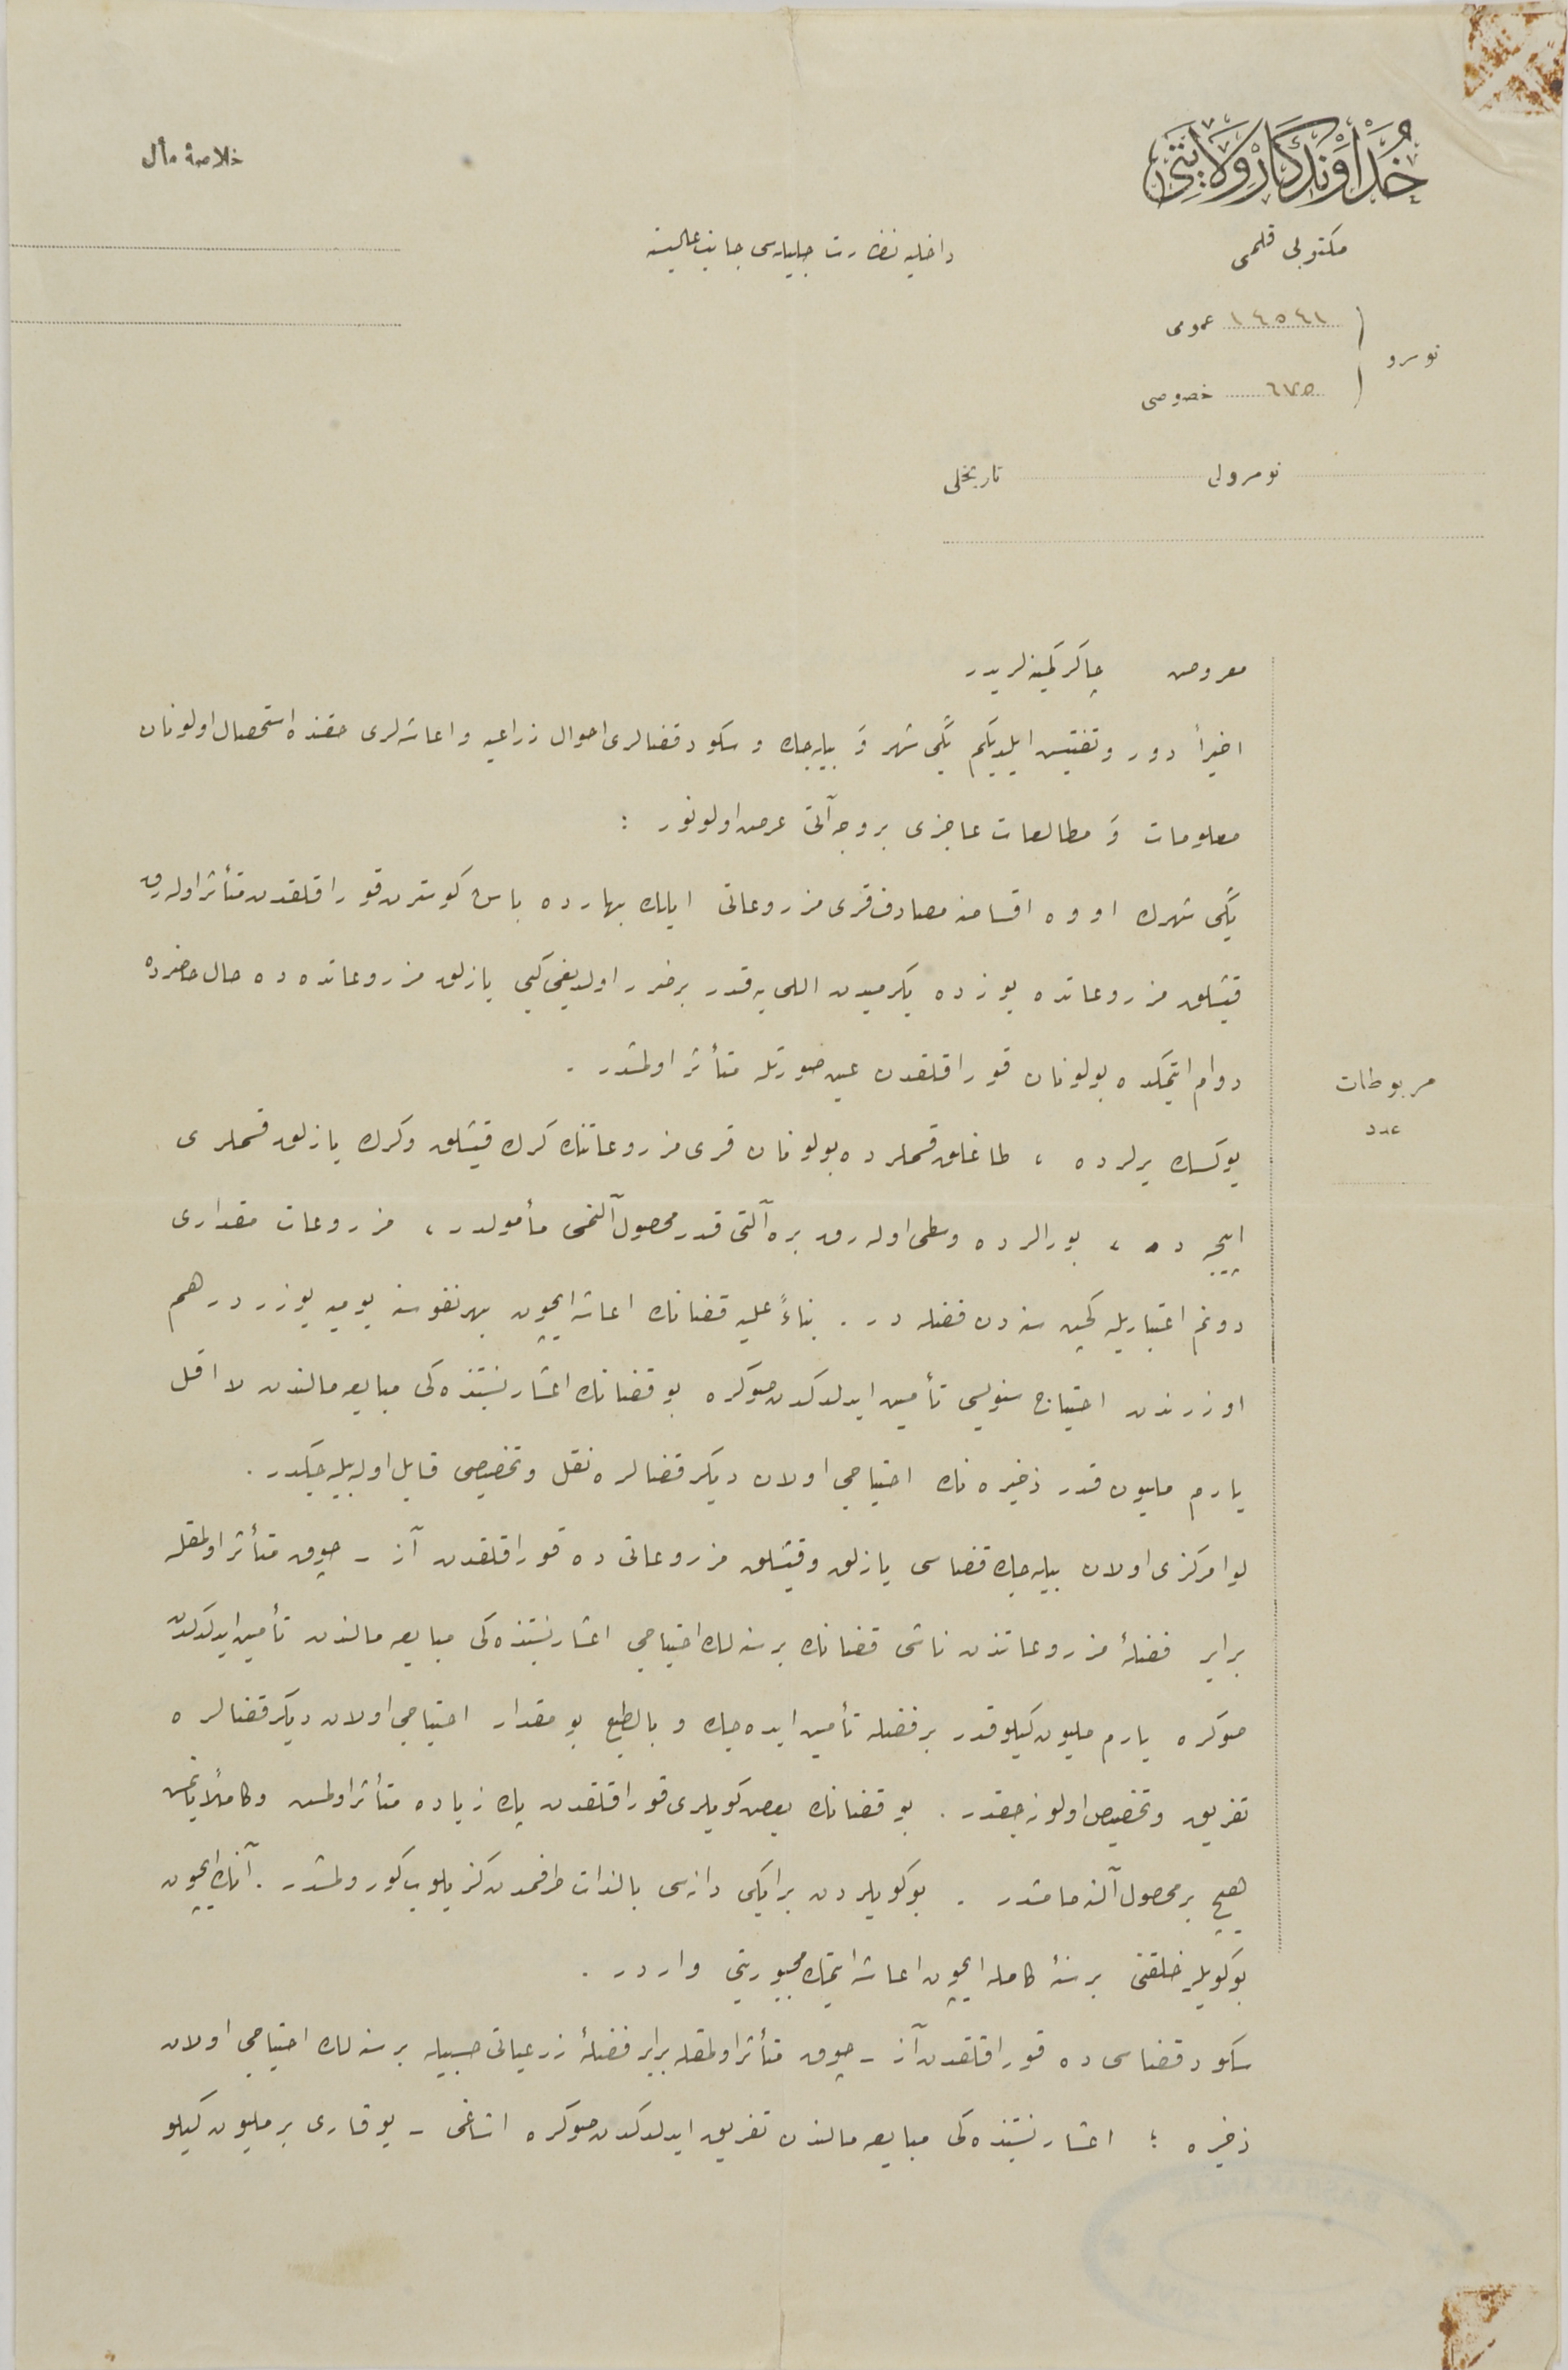 خداوندكار ولايتى
مكتوبى قلمى
خلاصهٔ مأل
داخليه نظارت جليله‌سى جانب عاليسنه
نومرو
١٤٥٤١ عمومى
٦٧٥ خصوصى
نومرولى تاريخلى
معروض چاكر كمينه‌لريدر
اخيراً دور و تفتيش ايلديكم يڭى شهر و بيله‌جك و سكود قضالرى احوال زراعيه و اعاشه‌لرى حقنده استحصال اولونان
معلومات و مطالعات عاجزى بروجه آتى عرض اولونور :
يڭى شهرك اووه اقسامنه مصادف قرى مزروعاتى ايلك بهارده باش كوسترن قوراقلقدن متأثر اوله‌رق
قيشلق مزروعاتده يوزده يكرميدن اللى‌يه قدر بر ضرر اولديغى كبى يازلق مزروعاتده ده حال حاضرده
دوام ايتمكده بولونان قوراقلقدن عين صورتله متأثر اولمشدر .
مربوطات
عدد
يوكسك يرلرده ، طاغلق قسملرده بولونان قرى مزروعاتنك كرك قيشلق وكرك يازلق قسملرى
اييجه ده ، بورالرده وسطى اوله‌رق بره آلتى قدر محصول آلنمسى مأمولدر ، مزروعات مقدارى
دونم اعتباريله كچن سنه دن فضله در . بناءً عليه قضانك اعاشه ايچون بهر نفوسه يوميه يوزر درهم
اوزرندن احتياج سنويسى تأمين ايدلدكدن صوكره بو قضانك اعشار نسبتنده كى مبايعه مالندن لا اقل
يارم مليون قدر ذخيره نك احتياجى اولان ديكر قضالره نقل و تخصيصى قابل اوله‌بيله‌جكدر .
لوا مركزى اولان بيله‌جك قضاسى يازلق و قيشلق مزروعاتى ده قوراقلقدن آز - چوق متأثر اولمقله
برابر فضلهٔ مزروعاتدن ناشى قضانك بر سنه‌لك احتياجى اعشار نسبتنده كى مبايعه مالندن تأمين ايدلدكدن
صوكره يارم مليون كيلو قدر بر فضله تأمين ايده‌جك و بالطبع بو مقدار احتياجى اولان ديكر قضالره
تفريق و تخصيص اولونه‌جقدر . بو قضانك بعض كويلرى قوراقلقدن پك زياده متأثر اولمش و كاملاً يانمش
هيچ بر محصول آلنه‌مامشدر . بو كويلردن بر ايكى دانه‌سى بالذات طرفمدن كزيلوب كورولمشدر . آنك ايچون
بو كويلر خلقنى بر سنهٔ كامله ايچون اعاشه ايتمك مجبوريتى واردر .
سكود قضاسى ده قوراقلقدن آز - چوق متأثر اولمقله برابر فضلهٔ زرعياتى حسبيله بر سنه‌لك احتياجى اولان
ذخيره ؛ اعشار نسبتنده كى مبايعه مالندن تفريق ايدلدكدن صوكره اشاغى - يوقارى بر مليون كيلو